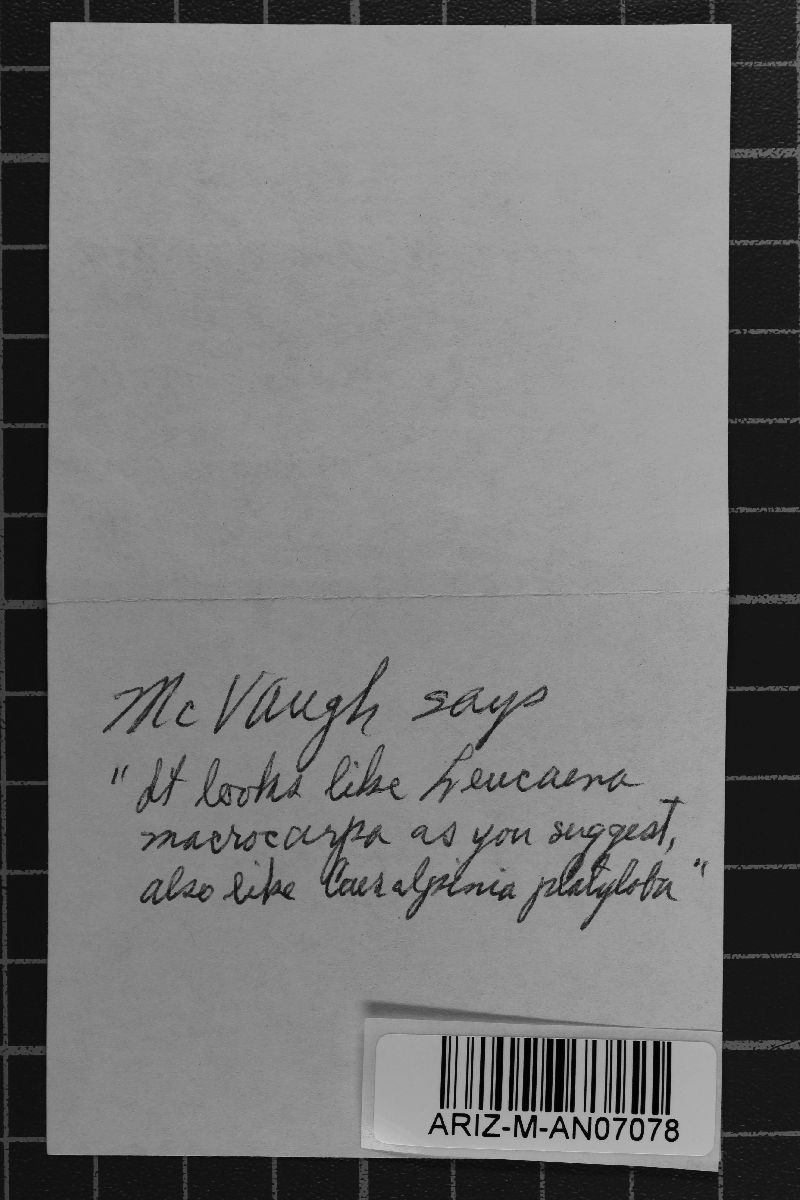 McVaugh says
"It looks like Leucaena
macrocarpa as you suggest,
also like Caesalpinia platyloba"
ARIZ-M-AN07078